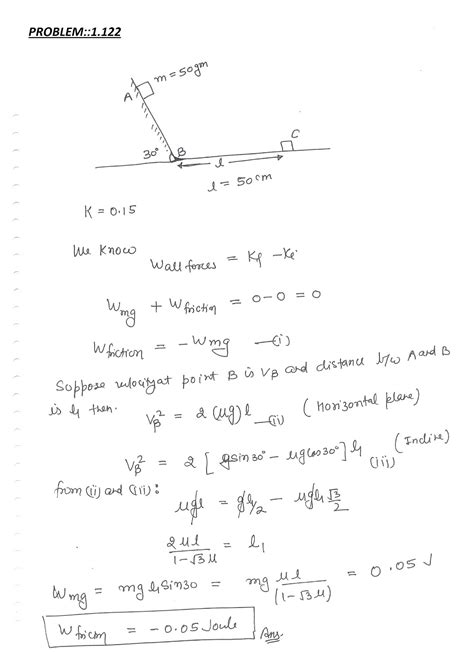 PROBLEM::1.122
m = 50gm
A
30°
B
C
l
l = 50cm
K = 0.15
We Know
Wall forces = Kf - Ki
Wmg + Wfriction = 0-0 = 0
Wfriction = - Wmg —(i)
Suppose velocity at point B is VB and distance b/w A and B
is l1 then.
VB² = 2 (μg) l —(ii) (Horizontal plane)
VB² = 2 [gsin30° - μgcos30°] l1 (iii) (Incline)
from (ii) and (iii):
μgl = gl1/2 - μgl1 √3/2
2μl / 1-√3μ = l1
Wmg = mg l1 Sin30 = mg μl / (1-√3μ) = 0.05 J
Wfricton = -0.05 Joule Ans.